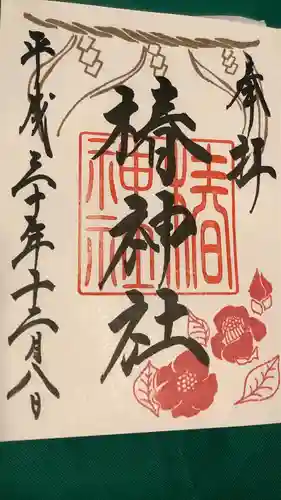 奉拝
椿神社
椿神社
平成三十年十二月八日